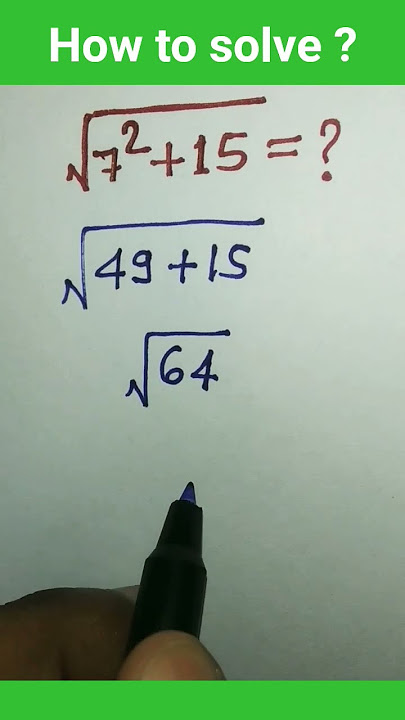 How to solve ?
√7²+15 = ?
√49+15
√64